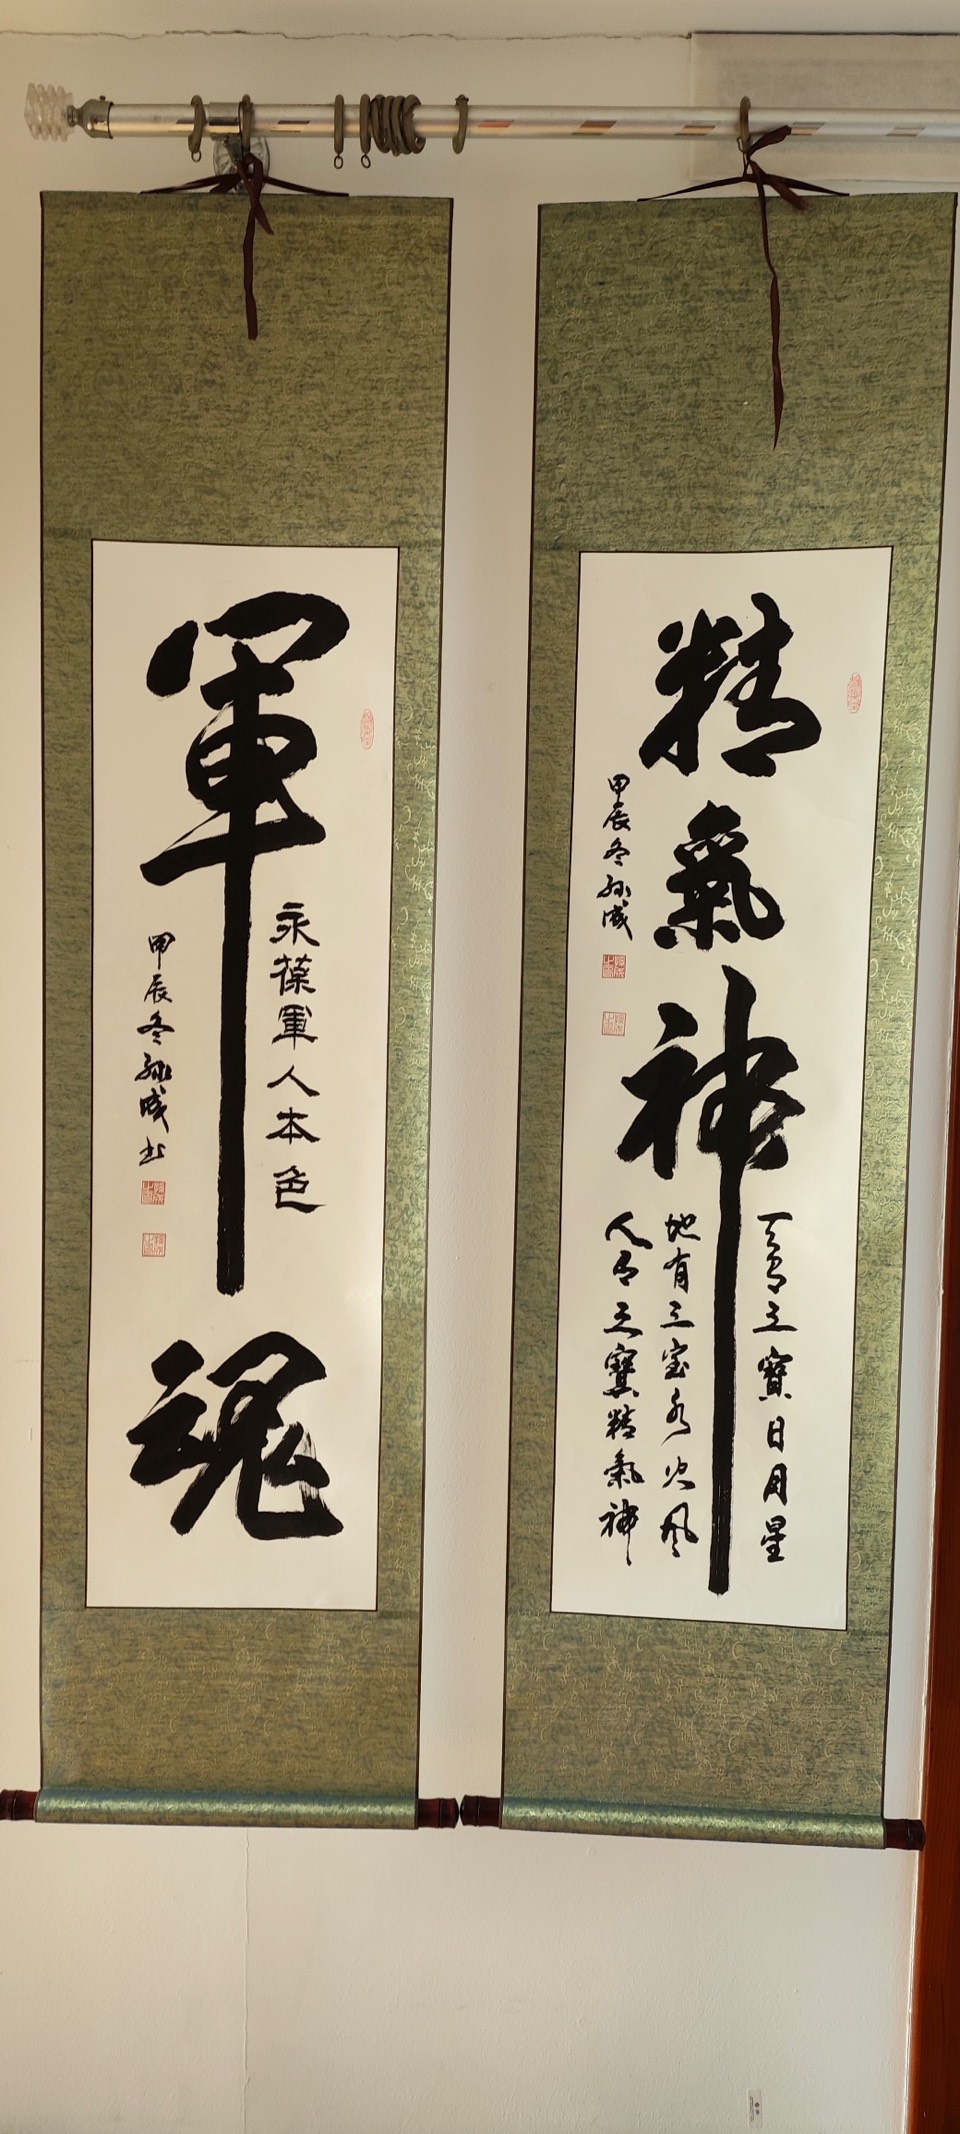 精氣神
天有三寶日月星
地有三宝水火风
人有三寶精氣神
甲辰冬孙成
軍魂
永葆軍人本色
甲辰冬孙成书